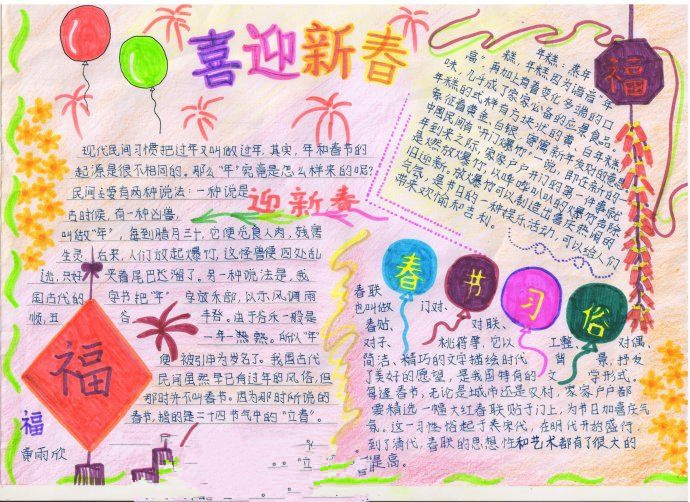 喜迎新春
现代民间习惯把过年又叫做过年.其实,年和春节的
起源是很不相同的。那么"年"究竟是怎么样来的呢?
民间主要有两种说法:一种说是
迎新春
古时候,有一种凶兽,
叫做"年",每到腊月三十,它便觅食人肉,残害
生灵。后来,人们放起爆竹,这怪兽便四处乱
逃,只好夹着尾巴逃溜了。另一种说法是,我
国古代的字书把"年"字放禾部,以示风调雨
顺,五谷丰登。由于谷禾一般是
一年一熟。所以"年"
便被引伸为岁名了。我国古代
民间虽然早已有过年的风俗,但
那时并不叫春节。因为那时所说的
春节,指的是二十四节气中的"立春"。
福
福
黄雨欣
"立
年糕:蒸年
糕,年糕因为谐音"年
高",再加上有着变化多端的口
味,几乎成了家家必备的应景食品。
年糕的式样有方块状的黄、白年糕,
象征着黄金、白银,寄寓新年发财的意思
中国民间有"开门爆竹"一说。即在新的一
年到来之际,家家户户开门的第一件事就
是燃放爆竹,以哔哔叭叭的爆竹声除
旧迎新。放爆竹可以制造出喜庆热闹的
气氛,是节日的一种娱乐活动,可以给人们
带来欢愉和吉利。
福
春节习俗
春联
也叫做门对、
春贴、对联、
对子、桃符等,它以工整、对偶、
简洁、精巧的文字描绘时代背景,抒发
了美好的愿望,是我国特有的文学形式。
每逢春节,无论是城市还是农村,家家户户都
要精选一幅大红春联贴于门上,为节日加喜庆气
氛。这一习俗起于宋代,在明代开始盛行,
到了清代,春联的思想性和艺术都有了很大的
提高。